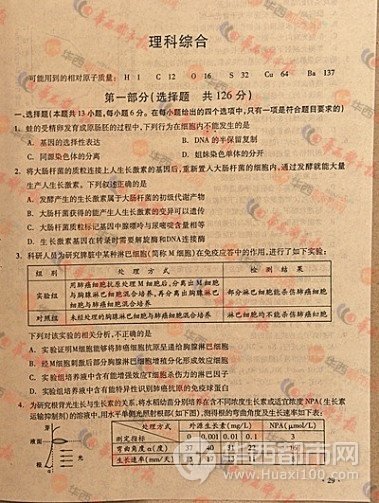 理科综合
可能用到的相对原子质量： H 1 C 12 O 16 S 32 Cu 64 Ba 137
第一部分(选择题 共126分)
一、选择题(本题共13小题,每小题6分。在每小题给出的四个选项中,只有一项是符合题目要求的)
1. 蛙的受精卵发育成原肠胚的过程中,下列行为在细胞内不能发生的是
A. 基因的选择性表达 B. DNA的半保留复制
C. 同源染色体的分离 D. 姐妹染色单体的分开
2. 将大肠杆菌的质粒连接上人生长激素的基因后,重新置入大肠杆菌的细胞内,通过发酵就能大量
生产人生长激素。下列叙述正确的是
A. 发酵产生的生长激素属于大肠杆菌的初级代谢产物
B. 大肠杆菌获得的能产生人生长激素的变异可以遗传
C. 大肠杆菌质粒标记基因中腺嘌呤与尿嘧啶含量相等
D. 生长激素基因在转录时需要解旋酶和DNA连接酶
3. 科研人员为研究脾脏中某种淋巴细胞(简称M细胞)在免疫应答中的作用,进行了如下实验:
组别 处理方式 检测结果
实验组 用肺癌细胞抗原处理M细胞后,分离出M细胞与胸腺淋巴细胞混合培养,再分离出胸腺淋巴细胞与肺癌细胞混合培养。 部分淋巴细胞能杀伤肺癌细胞
对照组 未经处理的胸腺淋巴细胞与肺癌细胞混合培养 淋巴细胞均不能杀伤肺癌细胞
下列对该实验的相关分析,不正确的是
A. 实验证明M细胞能够将肺癌细胞抗原呈递给胸腺淋巴细胞
B. 经M细胞刺激后部分胸腺淋巴细胞增殖分化形成效应细胞
C. 实验组培养液中含有能增强效应T细胞杀伤力的淋巴因子
D. 实验组培养液中含有能特异性识别肺癌抗原的免疫球蛋白
4. 为研究根背光生长与生长素的关系,将水稻幼苗分别培养在含不同浓度生长素或适宜浓度NPA(生长素
运输抑制剂)的溶液中,用水平单侧光照射根部(如下图),测得根的弯曲角度及生长速率如下表:
芽 液面 根 光
处理方式 外源生长素(mg/L) NPA(μmol/L)
测定指标 0 0.001 0.01 0.1 3
弯曲角度α(度) 37 40 31 22
生长速率(mm/天) 15 17
· 29 ·
华西都市网
www.Huaxi100.com